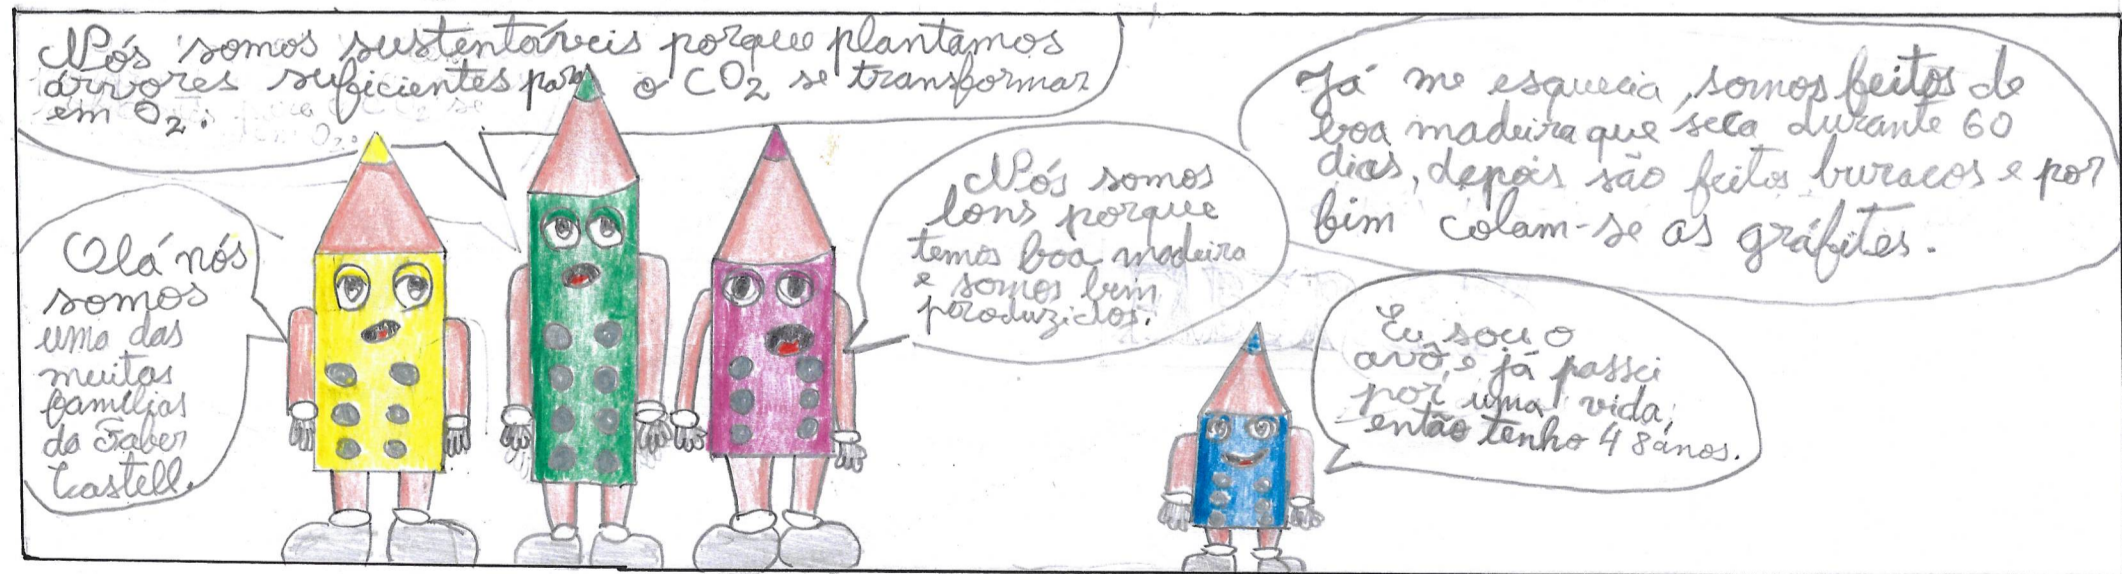 Nós somos sustentáveis porque plantamos
árvores suficientes para o CO2 se transformar
em O2.
Olá nós
somos
uma das
muitas
famílias
da Faber
Castell.
Nós somos
bons porque
temos boa madeira
e somos bem
produzidos.
Já me esquecia, somos feitos de
boa madeira que seca durante 60
dias, depois são feitos buracos e por
fim colam-se as gráfites.
Eu sou o
avô, e já passei
por uma vida,
então tenho 48 anos.